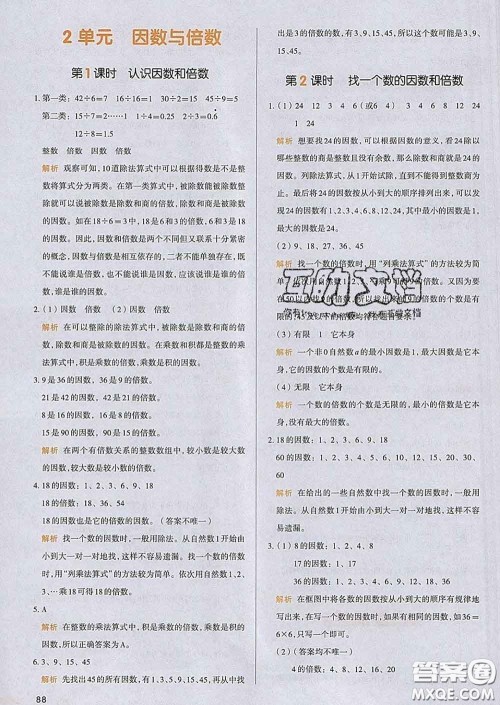 2 单元 因数与倍数
第1课时 认识因数和倍数
1. 第一类：42÷6=7 16÷16=1 30÷2=15 45÷9=5
第二类：15÷7=2……1
12÷8=1.5
整数 倍数 因数 倍数
解析 观察可知，10道除法算式中可以根据得数是不是整
数将算式分为两类。在第一类算式中，被除数能被除数整
除就可以说被除数是除数和商的倍数，除数和商是被除数
的因数。如在18÷6=3中，18是6和3的倍数，6和3是18的
因数。因数和倍数是两个不同的但又相互联系十分紧密的
概念，因数与倍数是相互依存的，二者不能单独存在，既
不能说谁是倍数，也不能说谁是因数，应该说谁是谁的倍
数，谁是谁的因数。
2. （1）因数 倍数 （2）因数 倍数
解析 在可以整除的除法算式中，被除数是除数和商的倍
数，除数和商是被除数的因数；在两个数都是整数的乘法
算式中，积是乘数的倍数，乘数是积的因数。
3. 9是36的因数，36是9的倍数。
8是16的因数，16是8的倍数。
15是90的因数，90是15的倍数。
解析 在两个有倍数关系的整数数组中，较小数是较大数
的因数，较大数是较小数的倍数。
4. 18的因数：1、2、3、6、9、18
18的倍数：18、36、54
18的因数也是它的倍数。（答案不唯一）
解析 找一个数的因数，用除法，从自然数1开始由
小到大一对一对地找，这样不容易遗漏。找一个数的倍数
时，用“列乘法算式”的方法较为简单。依次用自然数1、2、
3、…乘18可得18的倍数。
5. A
解析 在整数的乘法算式中，乘数是积的因数，积是乘数的
倍数，所以正确答案为A。
6. 3、9、15、45
解析 先找出45的所有因数，有1、3、5、9、15、45，再从中找
88
出是3的倍数的数，有3、9、15、45，所以这个数可能是3、9、
15、45。
第2课时 找一个数的因数和倍数
1. （1）24 12 3 4 6（或6 4） 3 8 2 12
1 24
解析 想要找出24的因数，可以根据因数的意义，看24除以
哪些整数的商是整数且没有余数，那么除数和商都是24的
因数。列除法算式，从1开始试除，直到除数与商相近时
为止。最后把24的因数按从小到大的顺序排列出来，可以
发现24的因数有1、2、3、4、6、8、12、24，其中最小的因数
是1，最大的因数是24。
（2）9、18、27、36、45
解析 找一个数的倍数时，用“列乘法算式”的方法较为简
（3）有限 1 它本身
解析 一个非0自然数a的最小因数是1，最大因数是它本
身，一个数的因数的个数是有限的。
（4）无限 它本身
解析 一个数的倍数的个数是无限的，最小倍数是它本身，
没有最大的倍数。
2. 18的因数：1、2、3、6、9、18
60
解析 在给出的一些自然数中找一个数的因数时，一般
用除法。从自然数1开始由小到大一对一对地找，这样不
容易遗漏。
3. （1）8的因数：1、2、4、8
17的因数：1、17
36的因数：1、2、3、4、6、9、12、18、36
解析 在框图中将各数的因数按从小到大顺序有规律地
写出来，在写一个数的因数时，如果有相同的因数，如36=
6×6，只写其中的一个即可。
（2）（答案不唯一）
4的倍数：4、8、12、16、20、24、28、32、36、40
互助文档
答案圈
MXQE.COM